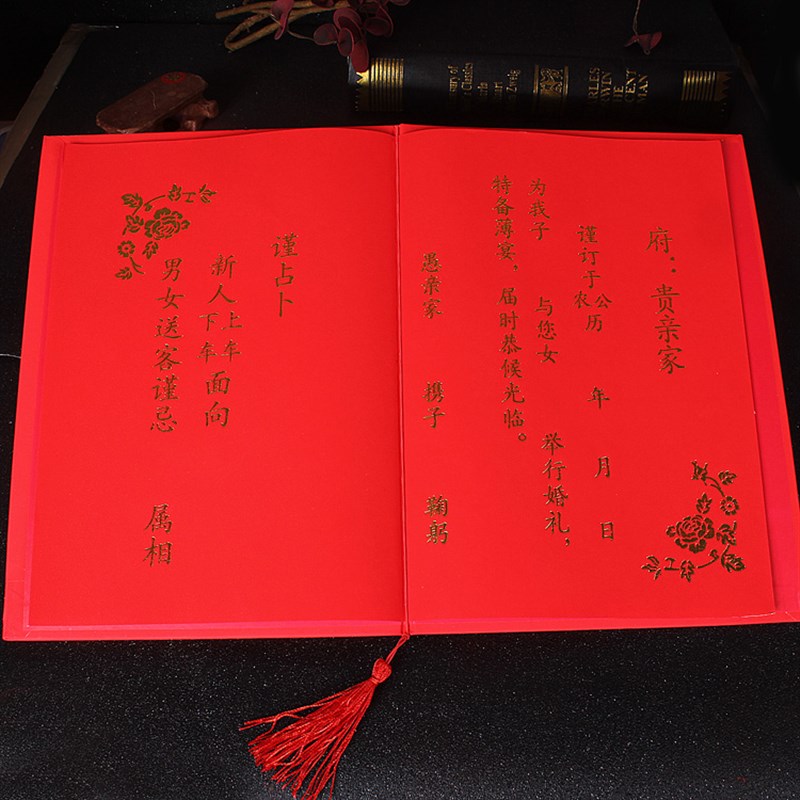 府：贵亲家
谨订于公历 年 月 日
农
为我子 与您女 举行婚礼，
特备薄宴，届时恭候光临。
愚亲家 携子 鞠躬
谨占卜
新人上车面向
下车
男女送客谨忌 属相
CHARLES
THE